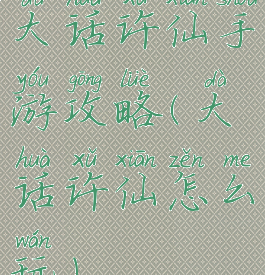 dà huà xǔ xiān shǒu
大话许仙手
yóu gōng lüè dà
游攻略(大
huà xǔ xiān zěn me
话许仙怎么
wán
玩)